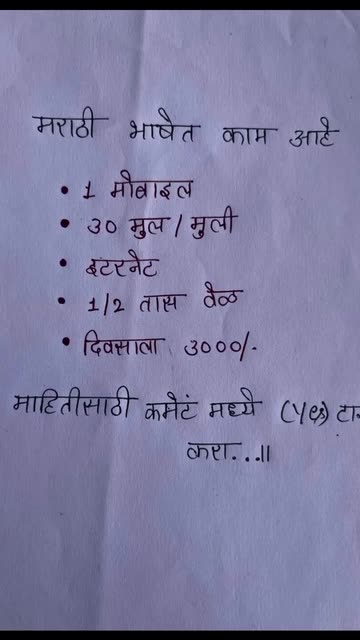 मराठी भाषेत काम आहे
• 1 मोबाइल
• 30 मुल / मुली
• इंटरनेट
• 1/2 तास वेळ
• दिवसाला 3000/-
माहितीसाठी कमेंटं मध्ये (Yes) टा
करा...॥